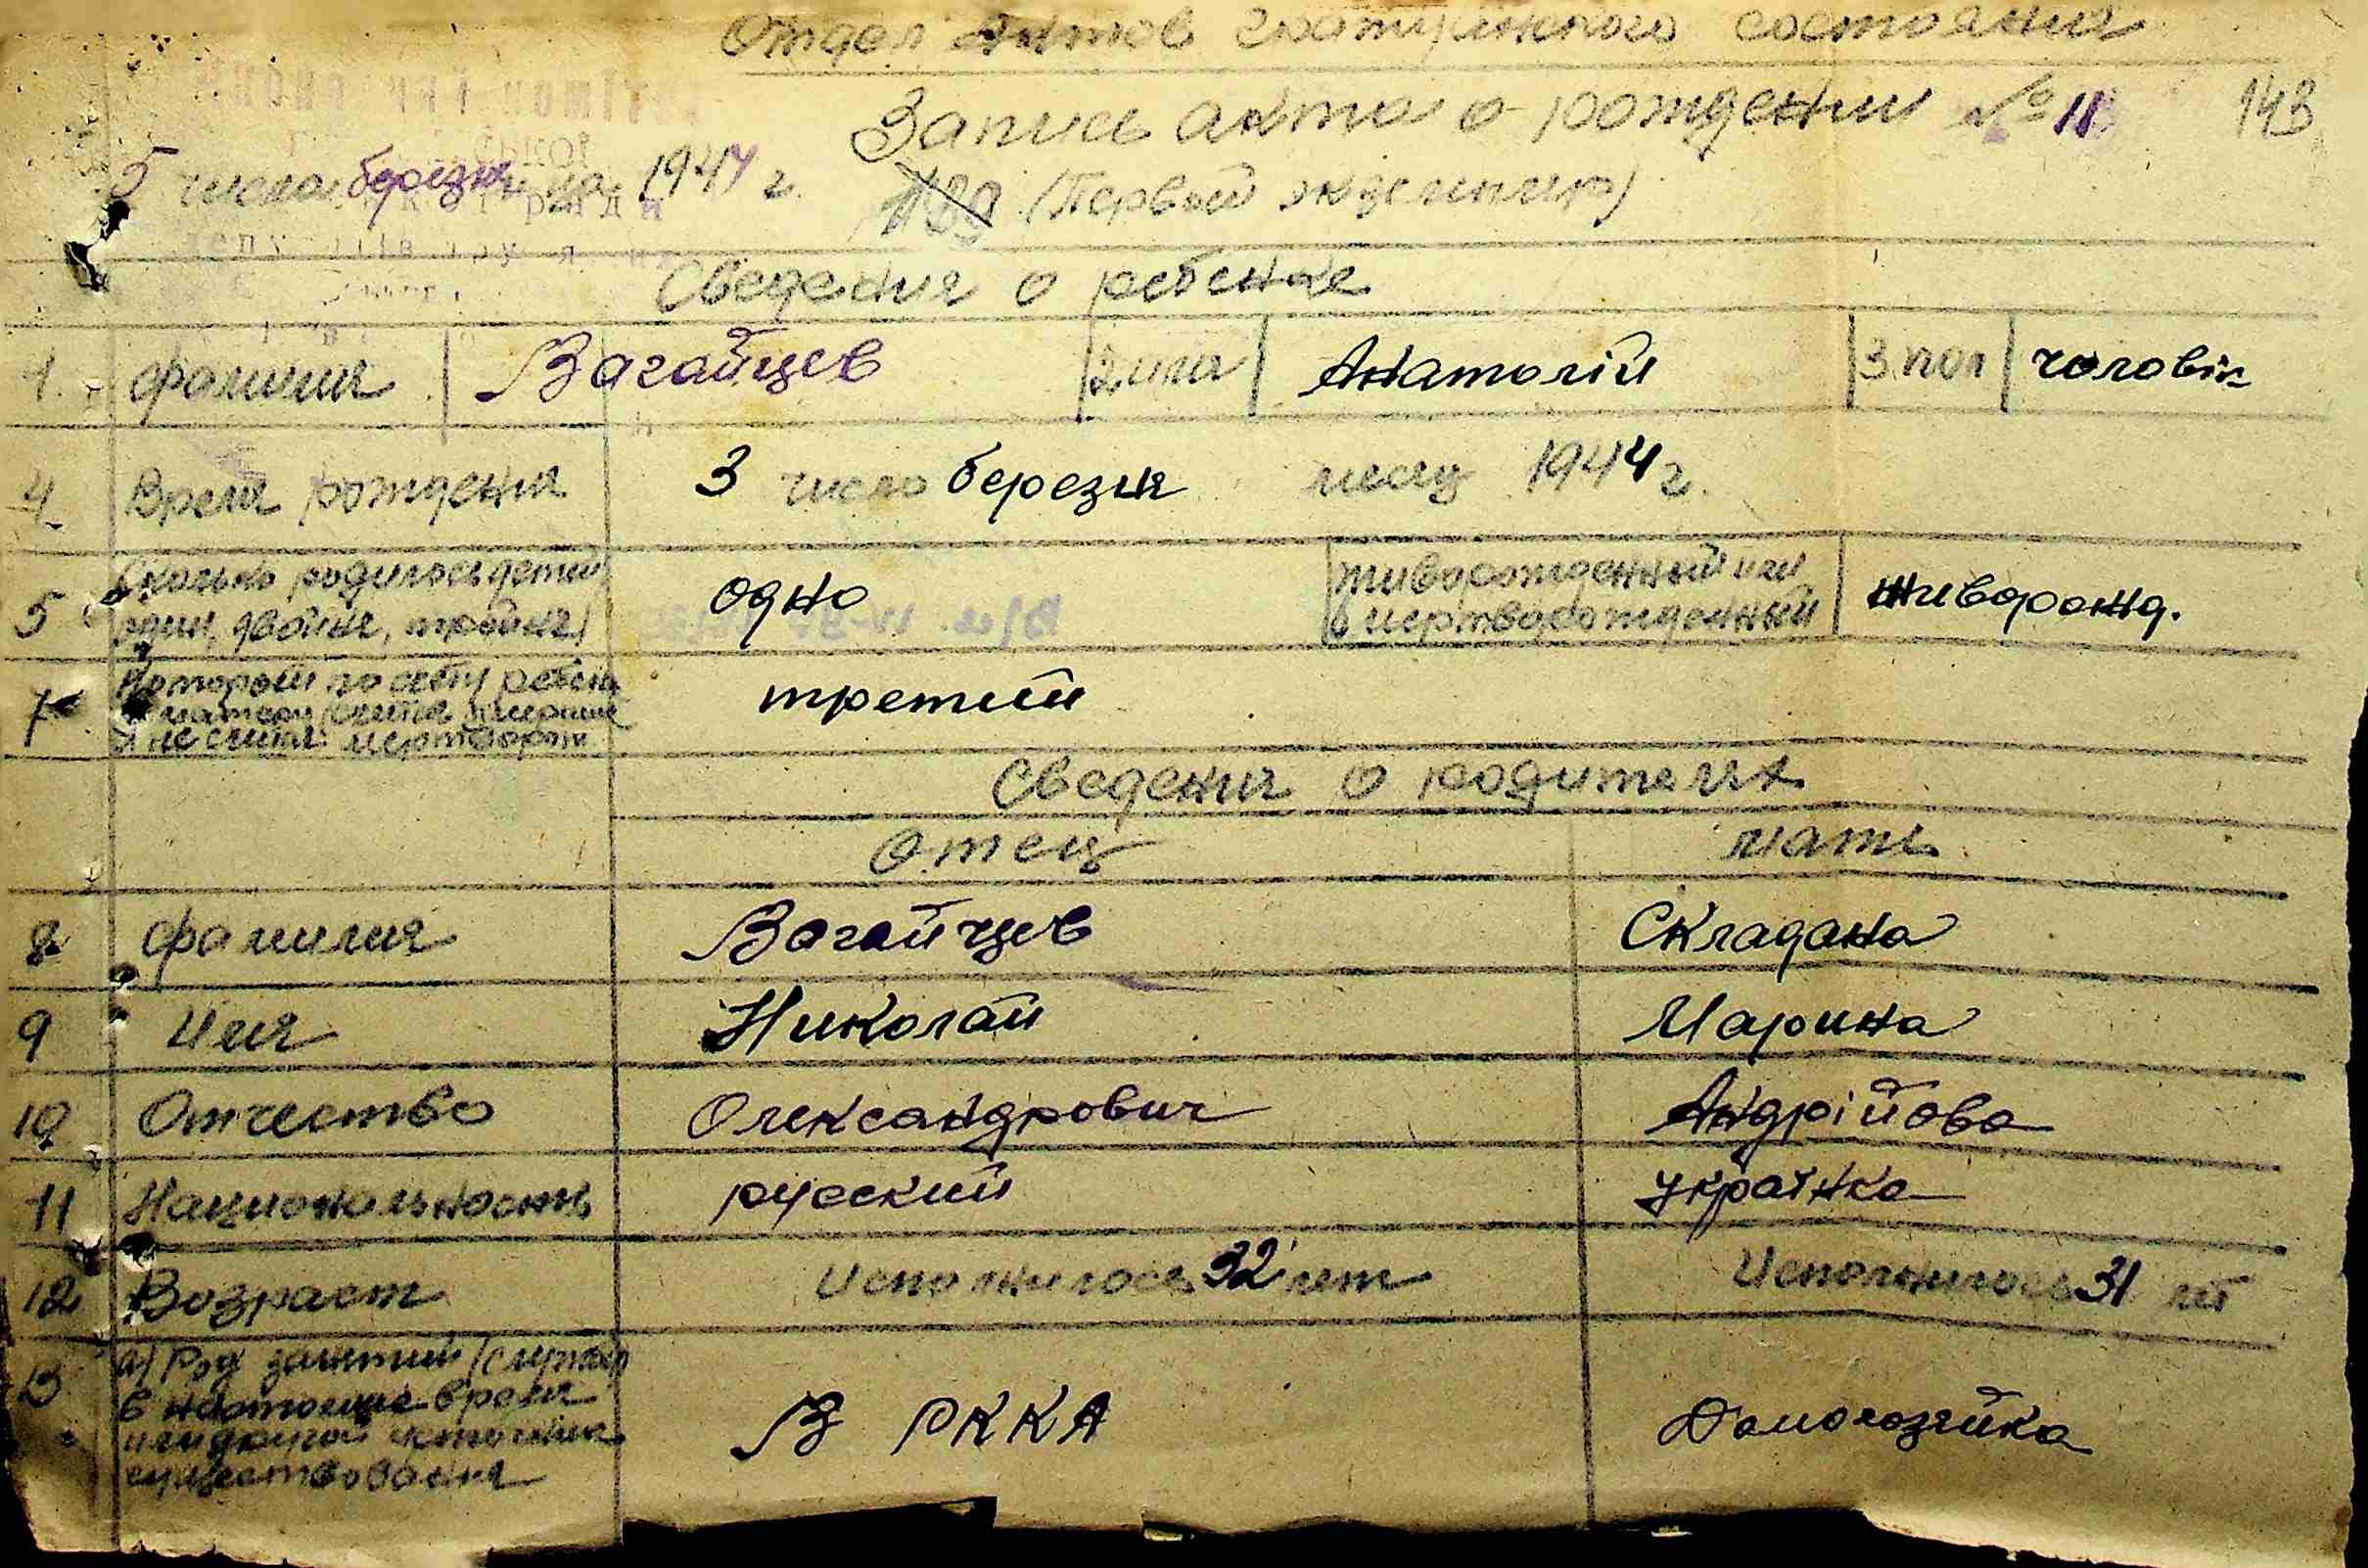 Отдел Актов гражданского состояния
Запись акта о рождении № 18 143
5 числа березня 1944 г. (Первый экземпляр)
Сведения о ребенке
1. фамилия Вагайцев 2 имя Анатолій 3. пол чоловік
4 Время рождения 3 число березня месяц 1944 г.
5 Сколько родилось детей одно живорожденный или живорожд.
один, двойня, тройня) мертворожденный
7 Который по счету третий
не считая мертворож
Сведения о родителях
Отец мать
8 фамилия Вагайцев Складана
9 Имя Николай Марина
10 Отчество Олександрович Андрійова
11 Национальность русский українка
12 Возраст Исполнилось 32 лет Исполнилось 31 лет
13 а) Род занятий (службы
в настоящее время В РККА Домохозяйка
или другой источник
существования